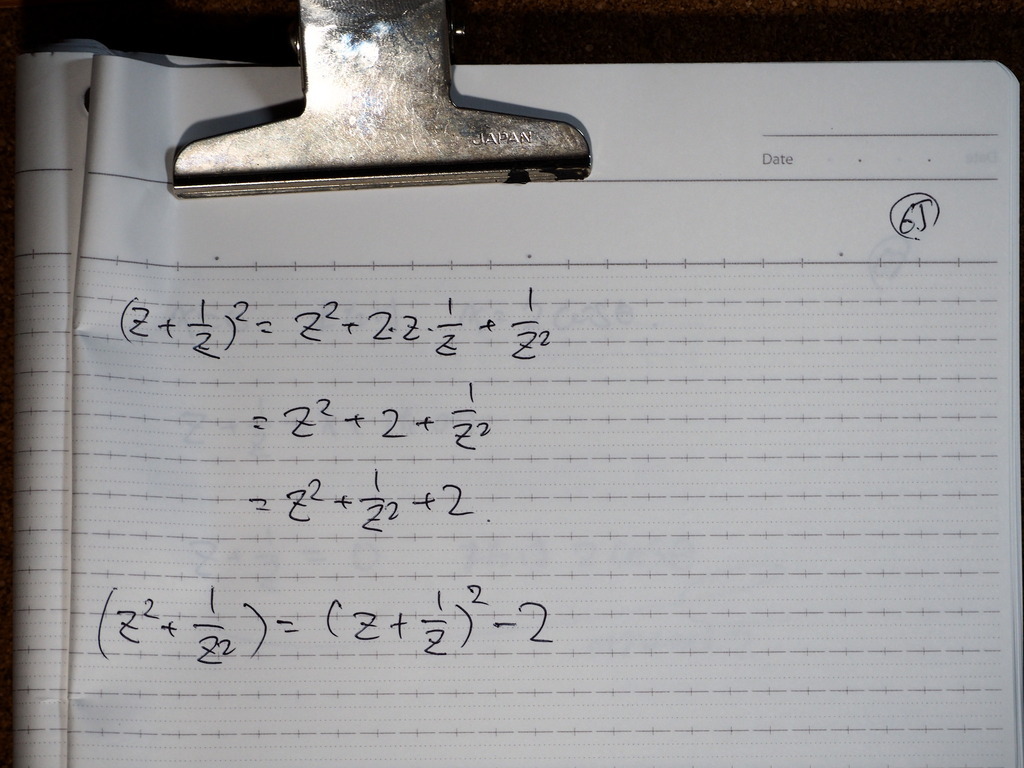 JAPAN
Date
65
(z + 1/z)² = z² + 2·z·1/z + 1/z²
= z² + 2 + 1/z²
= z² + 1/z² + 2.
(z² + 1/z²) = (z + 1/z)² - 2